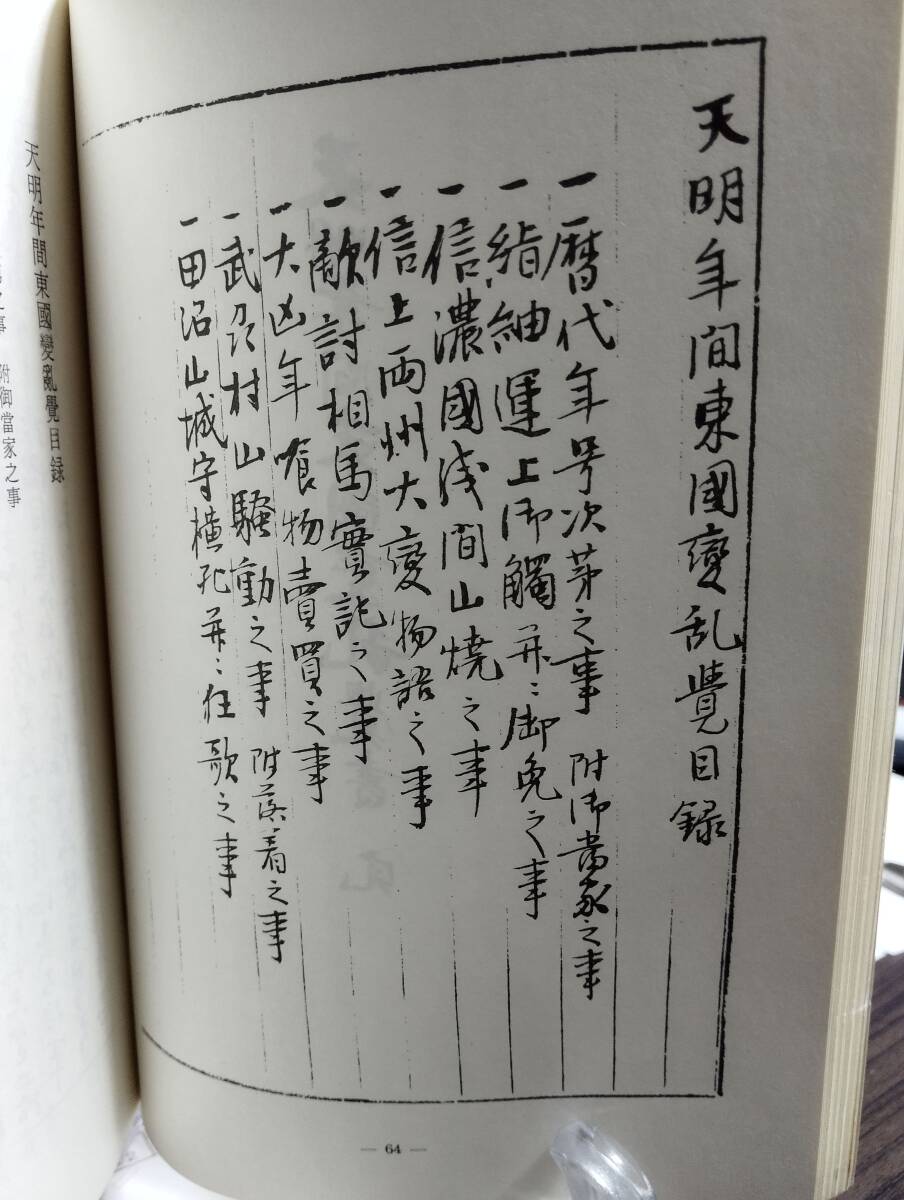 天明年間東國變乱覺目録
一暦代年号次第之事 附御當家之事
一絹紬運上御觸并ニ御免之事
一信濃國浅間山燒之事
一信上両州大變物語之事
一敵討相馬實記之事
一大凶年喰物賣買之事
一武州村山騒動之事 附落着之事
一田沼山城守横死并ニ狂歌之事
— 64 —
天明年間東國變亂覺目録
之事 附御當家之事